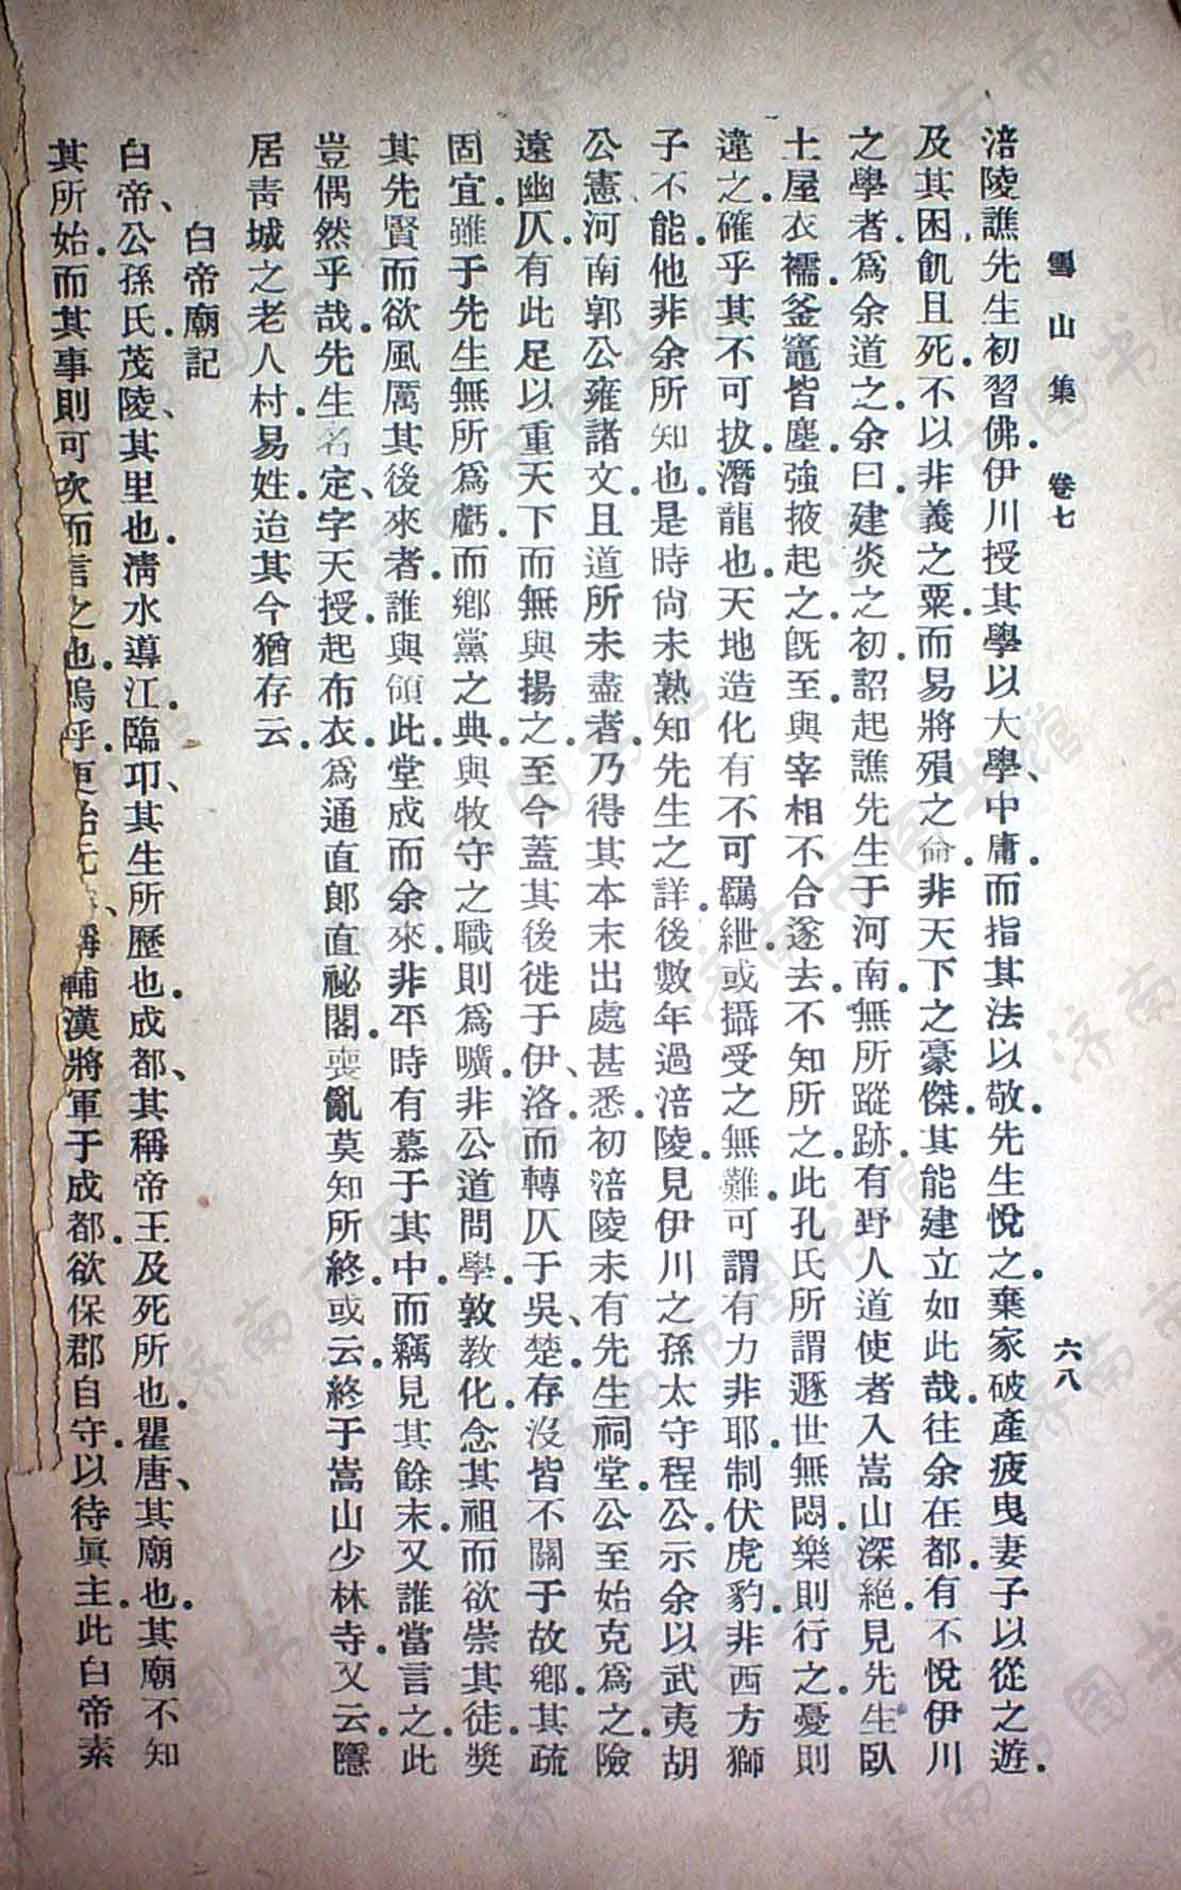 雪山集 卷七 六八
涪陵譙先生初習佛。伊川授其學以大學、中庸。而指其法以敬。先生悅之。棄家破產疲曳妻子以從之遊。
及其困飢且死。不以非義之粟而易將殞之侖。非天下之豪傑。其能建立如此哉。往余在都。有不悅伊川
之學者。爲余道之。余曰。建炎之初。詔起譙先生于河南。無所蹤跡。有野人道使者入嵩山深絕。見先生臥
土屋衣襦。釜竈皆塵。強掖起之。旣至。與宰相不合。遂去。不知所之。此孔氏所謂遯世無悶。樂則行之。憂則
違之。確乎其不可拔。潛龍也。天地造化有不可羈紲。或攝受之無難。可謂有力非耶。制伏虎豹。非西方獅
子不能。他非余所知也。是時尙未熟知先生之詳。後數年過涪陵。見伊川之孫太守程公。示余以武夷胡
公憲、河南郭公雍諸文。且道所未盡者。乃得其本末出處甚悉。初涪陵未有先生祠堂。公至始克爲之。險
遠幽仄。有此足以重天下而無與揚之。至今蓋其後徙于伊、洛。而轉仄于吳、楚。存沒皆不關于故鄉。其疏
固宜。雖于先生無所爲虧。而鄉黨之典。與牧守之職則爲曠。非公道問學。敦教化。念其祖而欲崇其徒。獎
其先賢而欲風厲其後來者。誰與領此。此堂成而余來。非平時有慕于其中。而竊見其餘末。又誰當言之。此
豈偶然乎哉。先生名定、字天授。起布衣。爲通直郎直祕閣。喪亂莫知所終。或云。終于嵩山少林寺。又云。隱
居靑城之老人村。易姓。迨其今猶存云。
白帝廟記
白帝、公孫氏。茂陵、其里也。淸水導江。臨邛、其生所歷也。成都、其稱帝王及死所也。瞿唐、其廟也。其廟不知
其所始。而其事則可次而言之也。嗚呼。更始元、稱輔漢將軍于成都。欲保郡自守。以待眞主。此白帝素